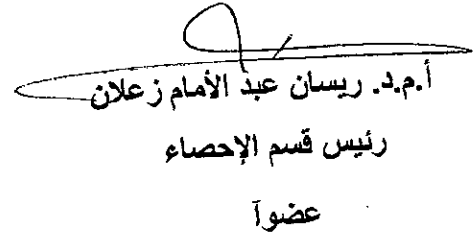 أ.م.د. ريسان عبد الأمام زعلان
رئيس قسم الإحصاء
عضوآ